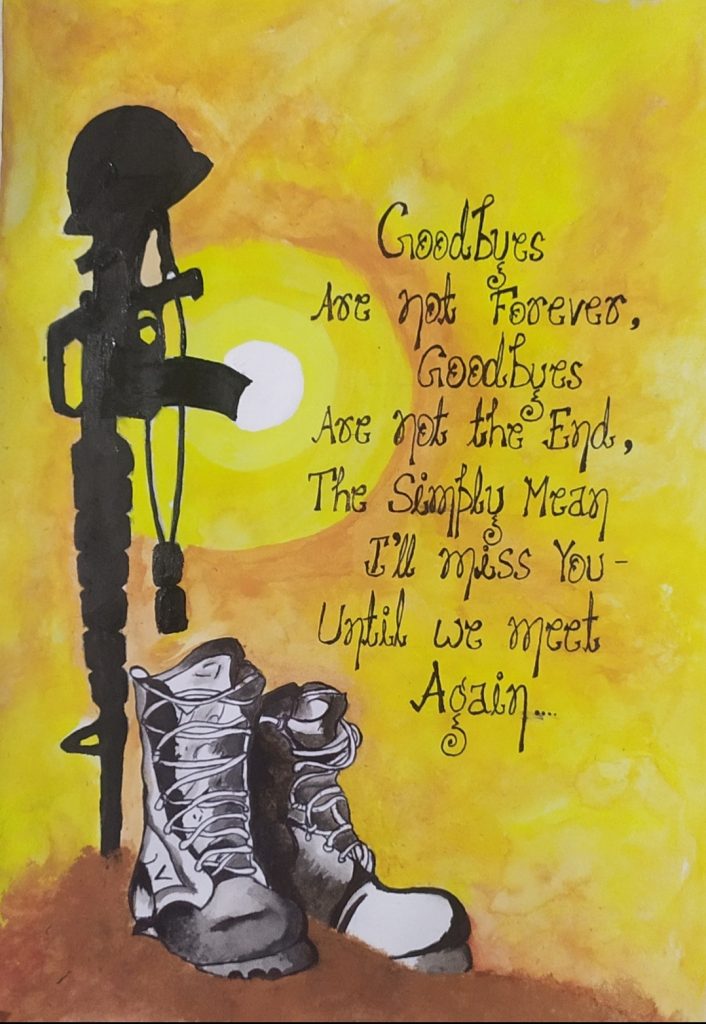 Goodbyes
Are not Forever,
Goodbyes
Are not the End,
The Simply Mean
I'll miss You-
Until we meet
Again....